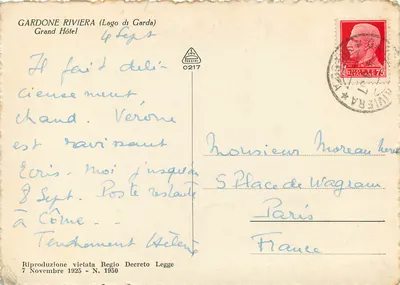 GARDONE RIVIERA (Lago di Garda)
Grand Hôtel
4 Sept
0217
Il fait déli-
cieusement
chaud. Vérone
est ravissant
Ecris-moi jusqu'au
8 Sept. Poste restante
à Côme -
Tendrement Hélène
Monsieur Moreau
5 Place de Wagram
Paris
France
RIVIERA
Riproduzione vietata Regio Decreto Legge
7 Novembre 1925 - N. 1950